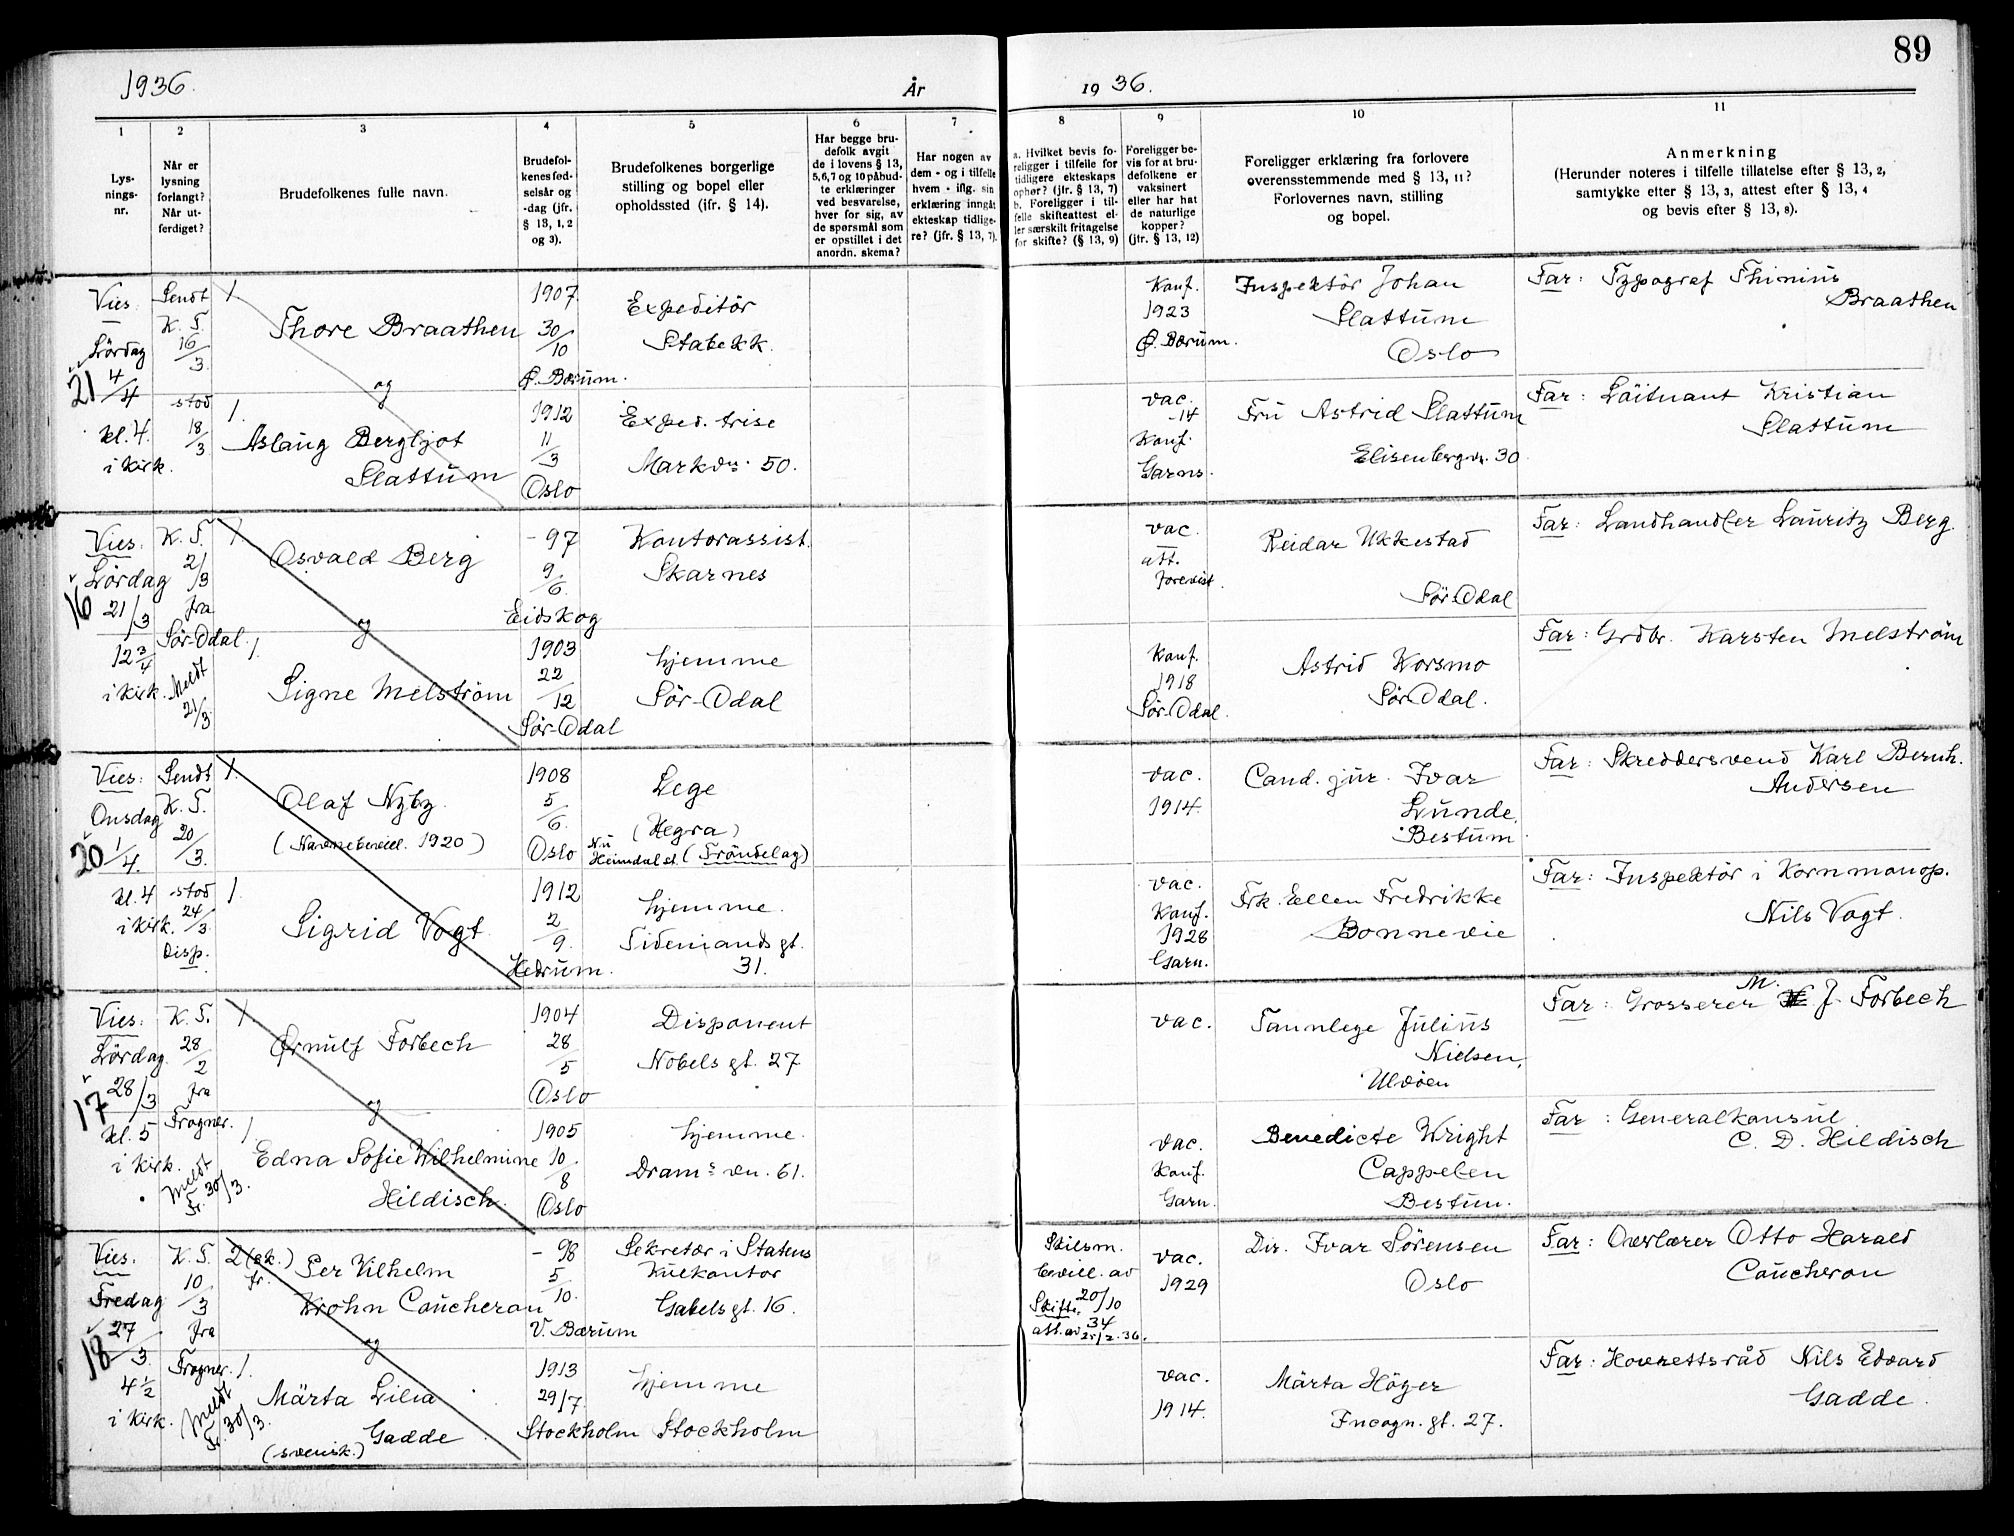 89
1936.
År
19 36.
1
2
3
4
5
6
7
8
9
10
11
Lys-
nings-
nr.
Når er
lysning
forlangt?
Når ut-
ferdiget?
Brudefolkenes fulle navn.
Brudefol-
kenes fød-
selsår og
-dag (jfr.
§ 13, 1, 2
og 3).
Brudefolkenes borgerlige
stilling og bopel eller
opholdssted (jfr. § 14).
Har begge bru-
defolk avgit
de i lovens § 13,
5,6,7 og 10 påbud-
te erklæringer
ved besvarelse,
hver for sig, av
de spørsmål som
er opstillet i det
anordn. skema?
Har nogen av
dem - og i tilfelle
hvem - iflg. sin
erklæring inngåt
ekteskap tidlige-
re? (jfr. § 13, 7).
a. Hvilket bevis fo-
religger i tilfelle for
tidligere ekteskaps
ophør? (jfr. § 13, 7)
b. Foreligger i til-
felle skifteattest el-
ler særskilt fritagelse
for skifte? (§ 13, 9)
Foreligger be-
vis for at bru-
defolkene er
vaksinert
eller har hat
de naturlige
kopper?
(jfr. § 13, 12)
Foreligger erklæring fra forlovere
overensstemmende med § 13, 11?
Forlovernes navn, stilling
og bopel.
Anmerkning
(Herunder noteres i tilfelle tillatelse efter § 13, 2,
samtykke efter § 13, 3, attest efter § 13, 4
og bevis efter § 13, 8).
Vies
Lördag
21 4/4
kl. 4.
i kirk.
Sendt
K. T.
16/3
stod
18/3
1
Thore Braathen
og
1.
Aslaug Bergljot
Slattum
1907
30/10
Ø. Bærum.
1912
11/3
Oslo
Expeditör
Stabekk.
Exped. trise
Markvn. 50.
Konf.
1923
Ø. Bærum.
vac.
-14
Konf.
Garns.
Inspektör Johan
Slattum
Oslo
Fru Astrid Slattum
Elisenbergvn. 30
Far: Typograf Thinius
Braathen
Far: Löitnant Kristian
Slattum
Vies:
Lördag
16 21/3
12 3/4
i kirk.
K. T.
2/3
fra
Sör-Odal.
Meldt
21/3.
1
Osvald Berg
og
1.
Signe Melström
- 97
9/6
Eidskog
1903
22/12
Sör-Odal
Kontorassist.
Skarnes
hjemme
Sör-Odal
vac.
att.
forevist.
Konf.
1918
Sör-Odal.
Reidar Ukkestad
Sör-Odal
Astrid Korsmo
Sör-Odal.
Far: Landhandler Lauritz Berg.
Far: Grdbr. Karsten Melström
Vies:
Onsdag
20 1/4.
kl. 4
i kirk.
Sendt
K. T.
20/3.
stod
24/3.
Disp.
1.
Olaf Nyby.
(Navnebevill. 1920)
1.
Sigrid Vogt
1908
5/6.
Oslo
1912
2/9.
Hedrum.
Lege
(Hegra)
Nu
Heimdal st. (Tröndelag)
hjemme.
Tidemands gt.
31.
vac.
1914.
vac.
Konf.
1928
Garn.
Cand. jur. Ivar
Lunde.
Bestum
Frk. Ellen Fredrikke
Bonnevie
Far: Skreddersvend Karl Bernh.
Andersen
Far: Inspektör i Kornmonop.
Nils Vogt.
Vies:
Lördag.
17 28/3
kl. 5
i kirk.
K. T.
28/2
fra
Frogner.
meldt
Fr. 30/3.
1
Ørnulf Forbech
og
1
Edna Sofie Wilhelmine
Hildisch.
1904
28/5
Oslo
1905
10/8
Oslo
Disponent
Nobels gt. 27
hjemme.
Drams vn. 61.
vac.
vac.
Konf.
Garn.
Tannlege Julius
Nielsen,
Ulvöen
Benedicte Wright
Cappelen
Bestum.
Far: Grosserer M. J. Forbech
Far: Generalkonsul
C. D. Hildisch
Vies:
Fredag
18 27/3.
4 1/2
i kirk.
K. T.
10/3
fra
Frogner.
meldt
Fr. 30/3.
2 (sk.)
fr.
Per Vilhelm
Krohn Coucheron
og
1.
Märta Lilia
Gadde
(svensk.)
- 98
5/10.
V. Bærum
1913
29/7
Stockholm
Sekretær i Statens
Kulkontor
Gabels gt. 16.
hjemme
Stockholm
Skilsm.
bevill. av
20/10
34
Skifte-
att. av 25/2. 36.
vac.
1929
vac.
1914.
Dir. Ivar Sörensen
Oslo
Märta Höyer
Incogn. gt. 27.
Far: Overlærer Otto Harald
Coucheron
Far: Hovrettsråd Nils Edvard
Gadde.